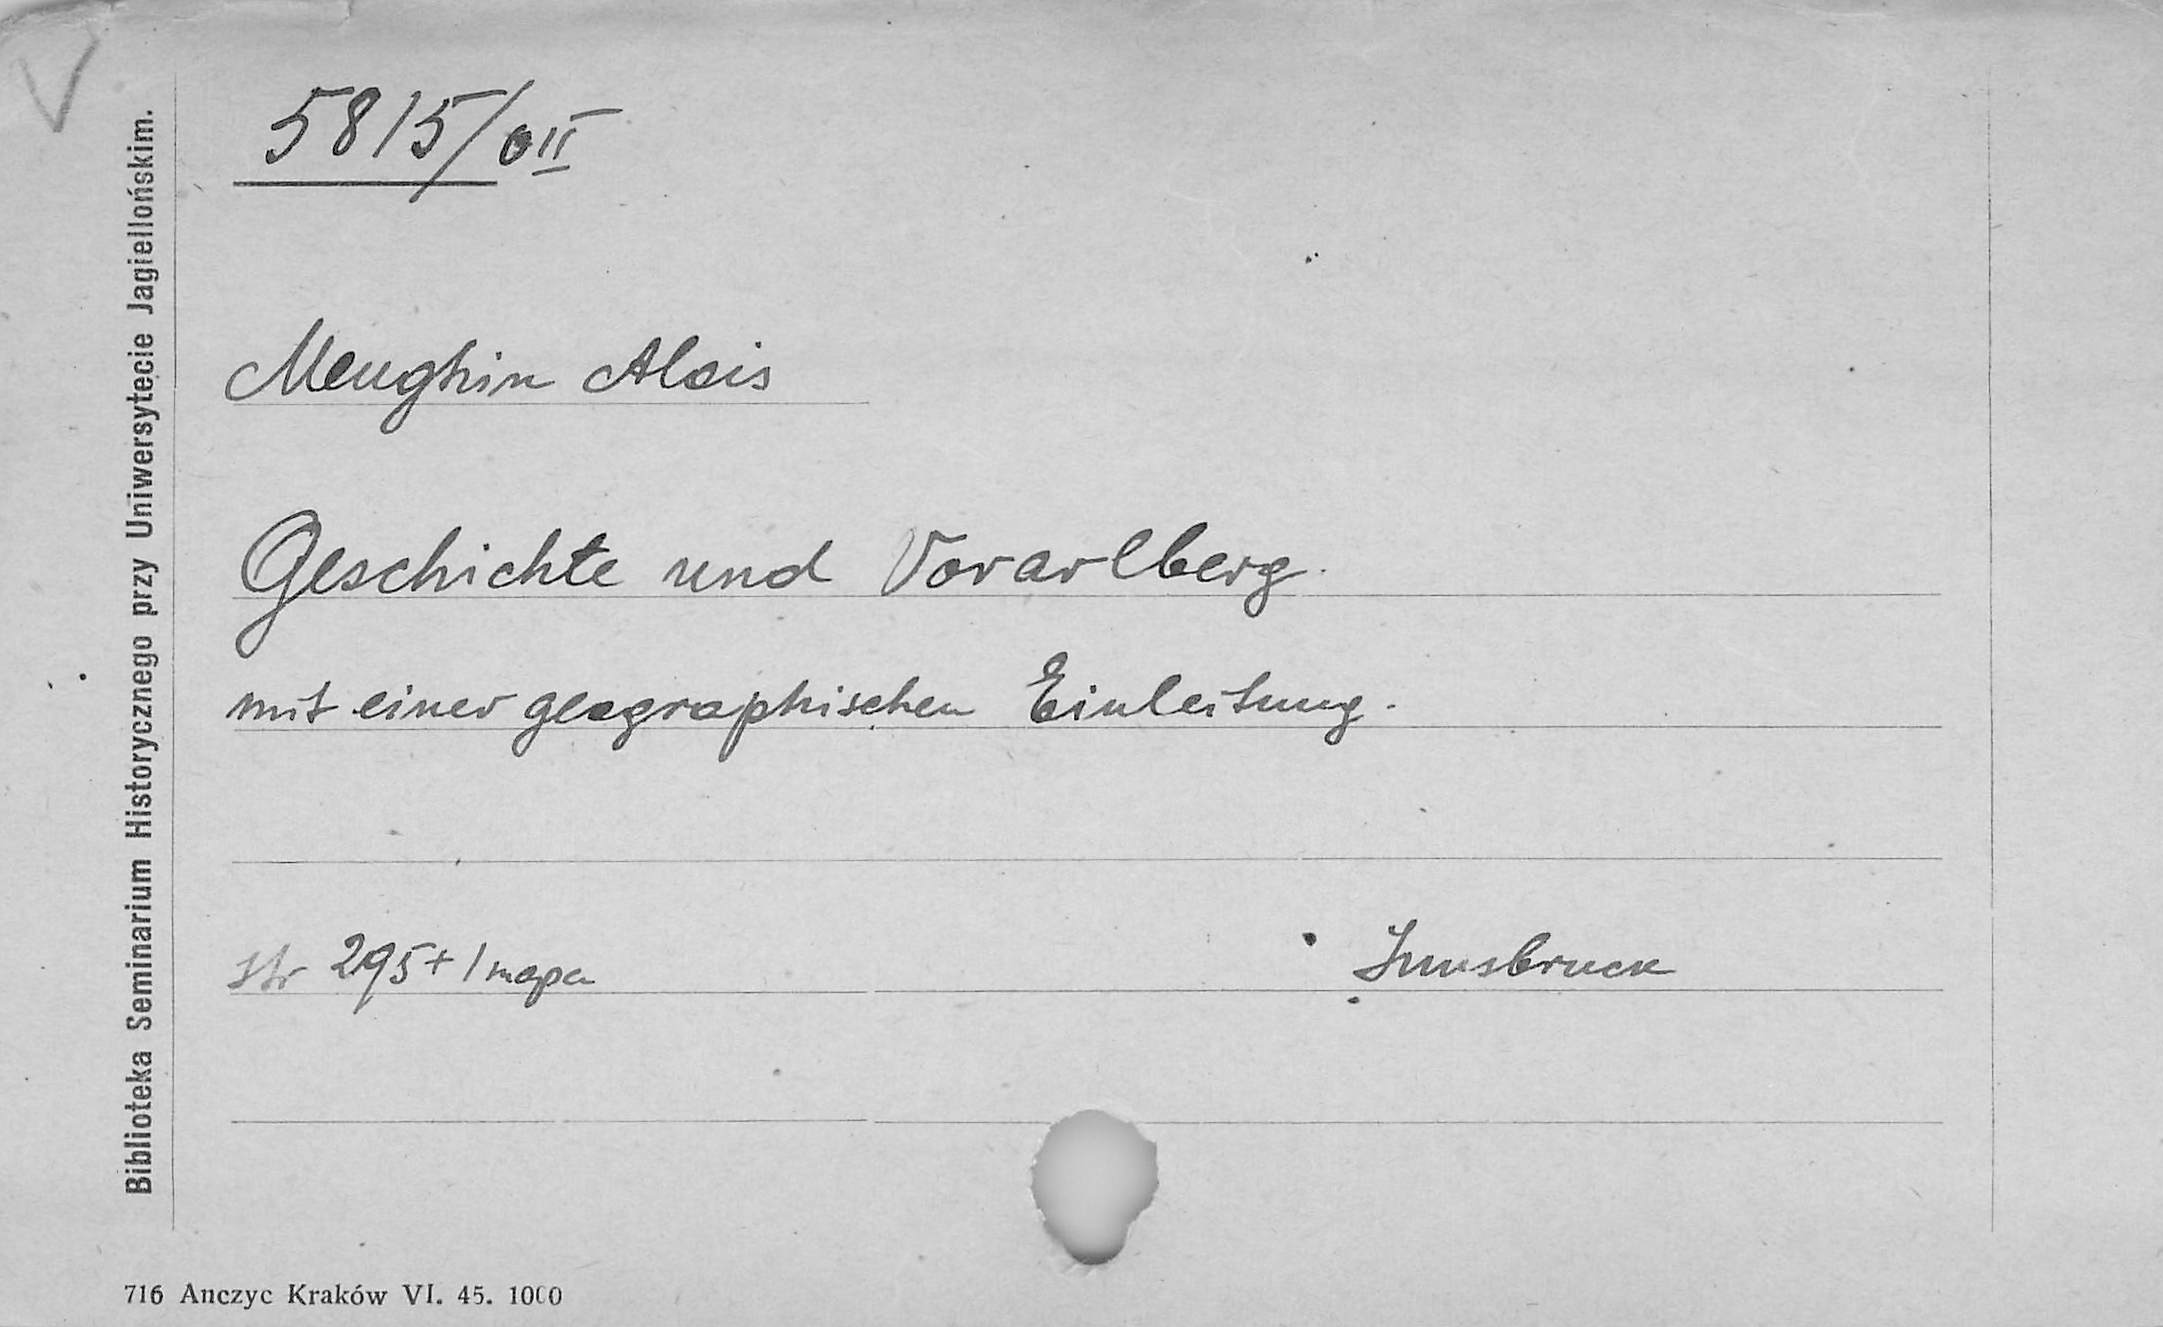 V
5815/0II
Menghin Alois
Geschichte und Vorarlberg.
mit einer geographischen Einleitung.
str 295+1 mapa
Innsbruck
Biblioteka Seminarium Historycznego przy Uniwersytecie Jagiellońskim.
716 Anczyc Kraków VI. 45. 1000